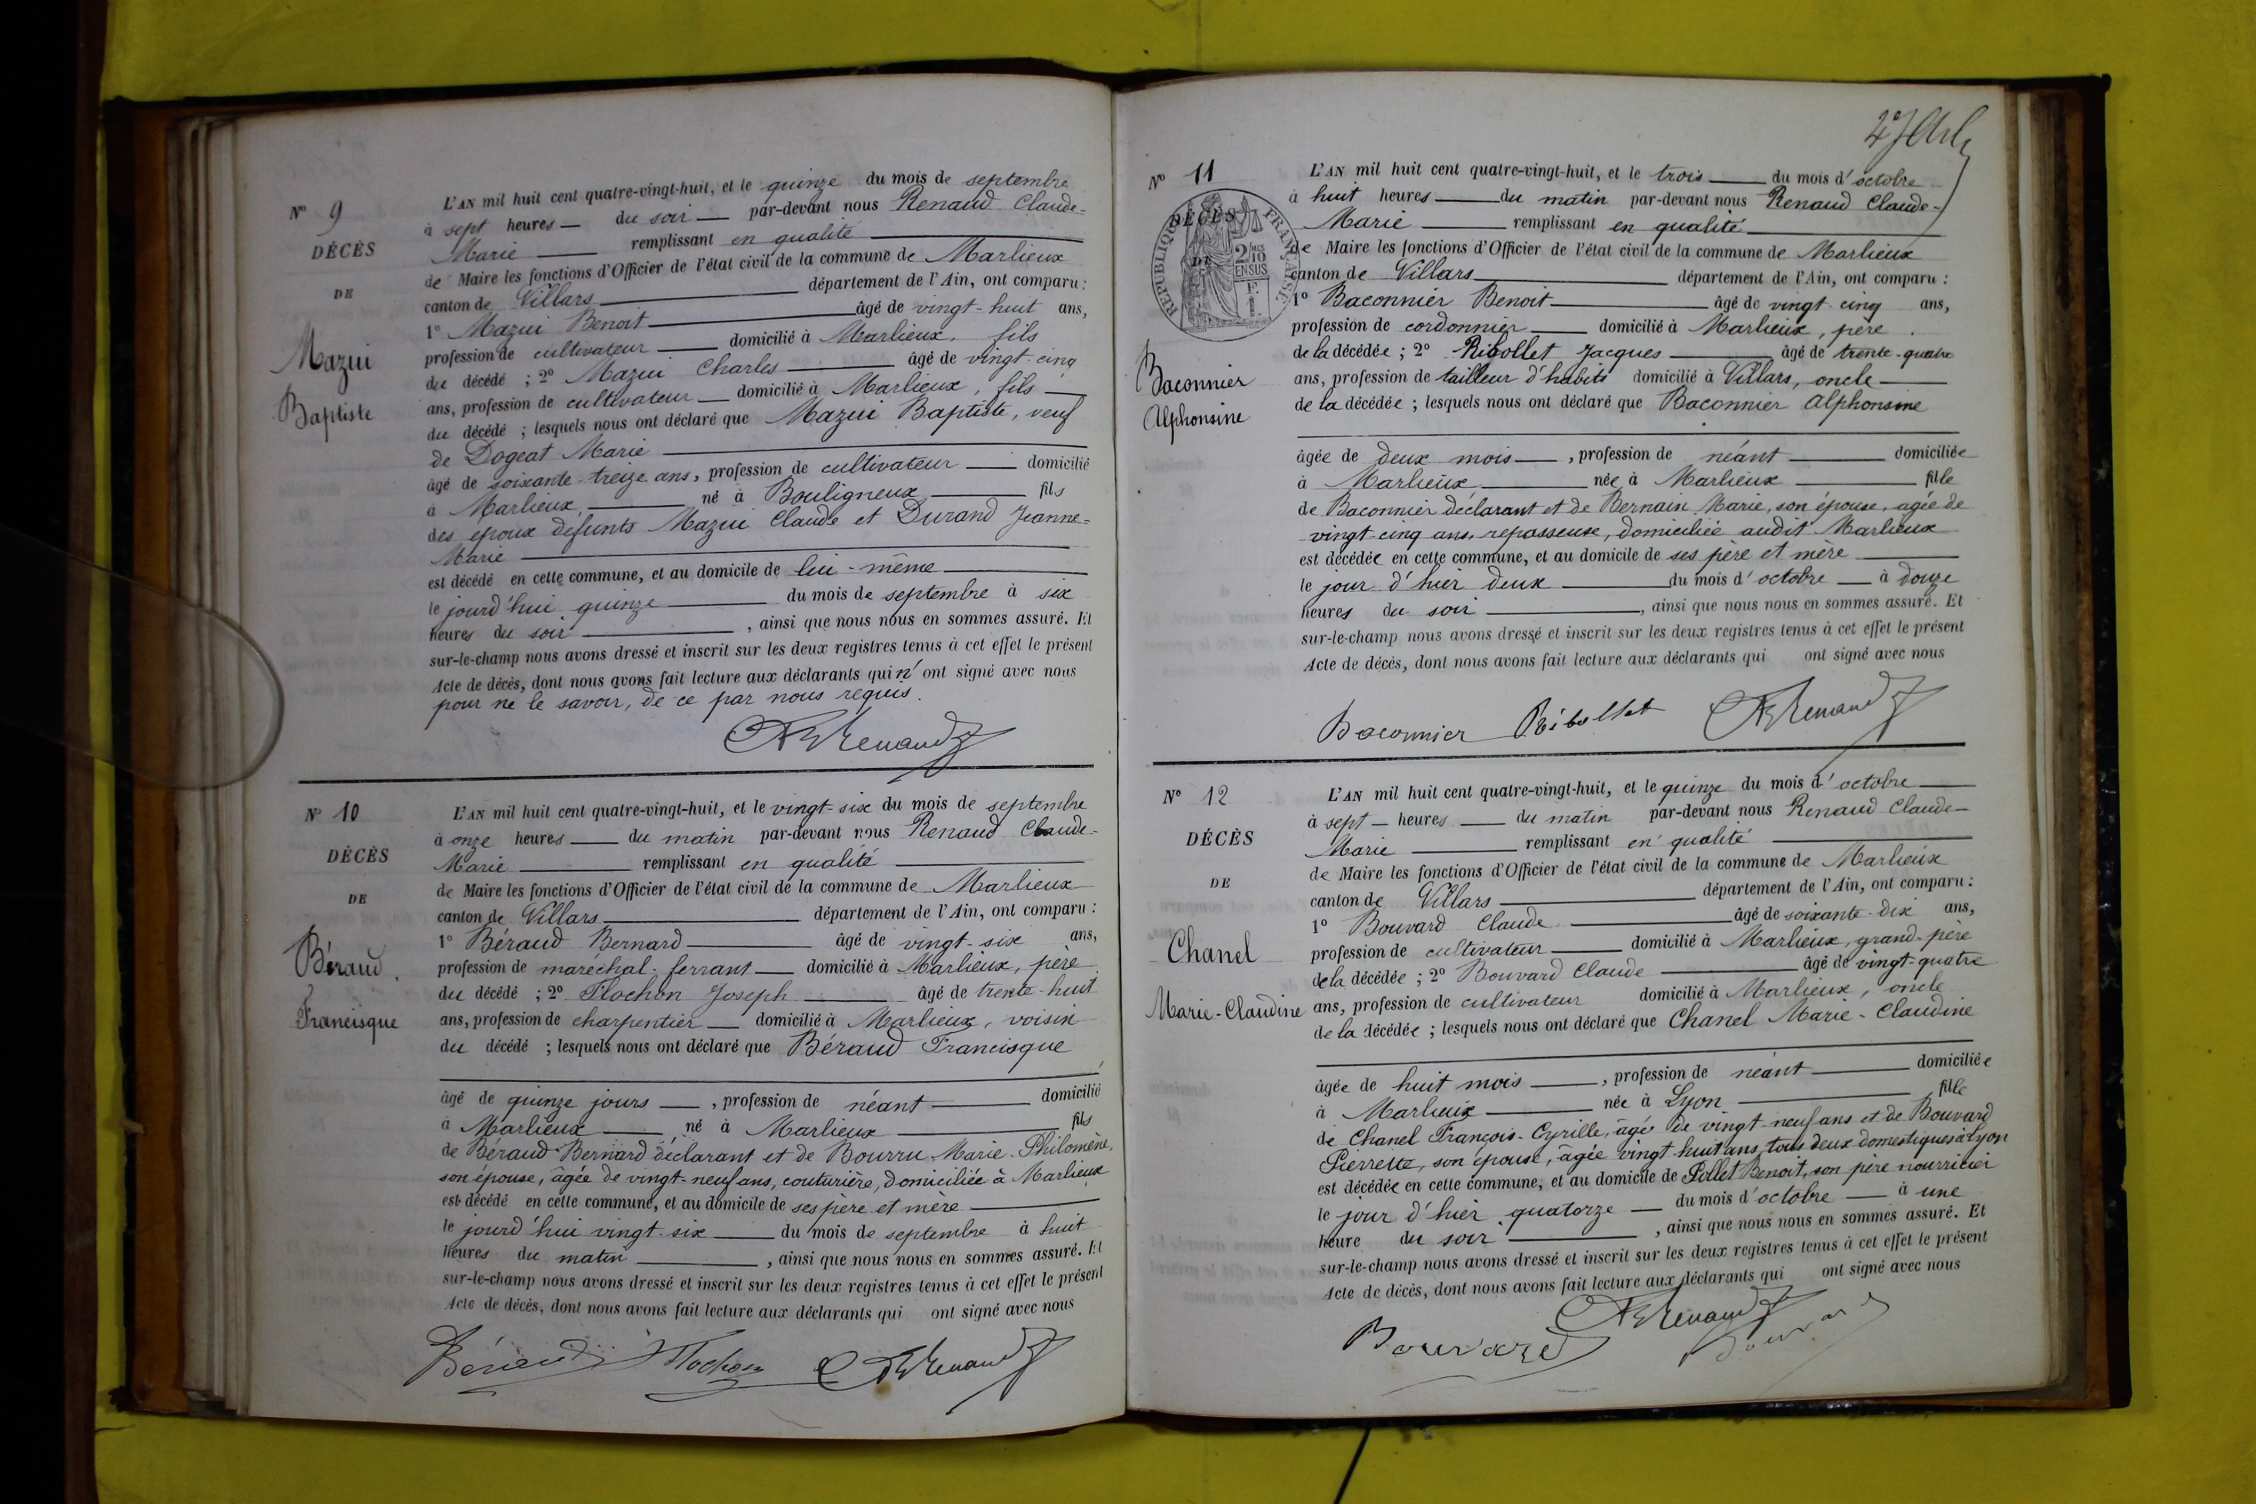 Nº 9
DÉCÈS
DE
Mazui
Baptiste
L'AN mil huit cent quatre-vingt-huit, et le quinze du mois de septembre
à sept heures du soir par-devant nous Renaud Claude-
Marie remplissant en qualité
de Maire les fonctions d'Officier de l'état civil de la commune de Marlieux
canton de Villars département de l'Ain, ont comparu :
1º Mazui Benoit âgé de vingt-huit ans,
profession de cultivateur domicilié à Marlieux, fils
du décédé ; 2º Mazui Charles âgé de vingt-cinq
ans, profession de cultivateur domicilié à Marlieux, fils
du décédé ; lesquels nous ont déclaré que Mazui Baptiste, veuf
de Dogeat Marie
âgé de soixante-treize ans, profession de cultivateur domicilié
à Marlieux, né à Bouligneux fils
des époux défunts Mazui Claude et Durand Jeanne-
Marie
est décédé en cette commune, et au domicile de lui-même
le jourd'hui quinze du mois de septembre à six
heures du soir, ainsi que nous nous en sommes assuré. Et
sur-le-champ nous avons dressé et inscrit sur les deux registres tenus à cet effet le présent
Acte de décès, dont nous avons fait lecture aux déclarants qui n'ont signé avec nous
pour ne le savoir, de ce par nous requis.
Renaud
Nº 10
DÉCÈS
DE
Béraud
Francisque
L'AN mil huit cent quatre-vingt-huit, et le vingt-six du mois de septembre
à onze heures du matin par-devant nous Renaud Claude-
Marie remplissant en qualité
de Maire les fonctions d'Officier de l'état civil de la commune de Marlieux
canton de Villars département de l'Ain, ont comparu :
1º Béraud Bernard âgé de vingt-six ans,
profession de maréchal-ferrant domicilié à Marlieux, père
du décédé ; 2º Flochon Joseph âgé de trente-huit
ans, profession de charpentier domicilié à Marlieux, voisin
du décédé ; lesquels nous ont déclaré que Béraud Francisque
âgé de quinze jours, profession de néant domicilié
à Marlieux né à Marlieux fils
de Béraud Bernard déclarant et de Bourru Marie-Philomène,
son épouse, âgée de vingt-neuf ans, couturière, domiciliée à Marlieux
est décédé en cette commune, et au domicile de ses père et mère
le jourd'hui vingt-six du mois de septembre à huit
heures du matin, ainsi que nous nous en sommes assuré. Et
sur-le-champ nous avons dressé et inscrit sur les deux registres tenus à cet effet le présent
Acte de décès, dont nous avons fait lecture aux déclarants qui ont signé avec nous
Béraud Flochon Renaud
Nº 11
DÉCÈS
DE
RÉPUBLIQUE FRANÇAISE
Baconnier
Alphonsine
L'AN mil huit cent quatre-vingt-huit, et le trois du mois d'octobre
à huit heures du matin par-devant nous Renaud Claude-
Marie remplissant en qualité
de Maire les fonctions d'Officier de l'état civil de la commune de Marlieux
canton de Villars département de l'Ain, ont comparu :
1º Baconnier Benoit âgé de vingt-cinq ans,
profession de cordonnier domicilié à Marlieux, père
de la décédée ; 2º Ribollet Jacques âgé de trente-quatre
ans, profession de tailleur d'habits domicilié à Villars, oncle
de la décédée ; lesquels nous ont déclaré que Baconnier Alphonsine
âgée de deux mois, profession de néant domiciliée
à Marlieux née à Marlieux fille
de Baconnier déclarant et de Bernain Marie, son épouse, âgée de
vingt-cinq ans, repasseuse, domiciliée audit Marlieux
est décédée en cette commune, et au domicile de ses père et mère
le jour d'hier deux du mois d'octobre à douze
heures du soir, ainsi que nous nous en sommes assuré. Et
sur-le-champ nous avons dressé et inscrit sur les deux registres tenus à cet effet le présent
Acte de décès, dont nous avons fait lecture aux déclarants qui ont signé avec nous
Baconnier Ribollet Renaud
Nº 12
DÉCÈS
DE
Chanel
Marie-Claudine
L'AN mil huit cent quatre-vingt-huit, et le quinze du mois d'octobre
à sept heures du matin par-devant nous Renaud Claude-
Marie remplissant en qualité
de Maire les fonctions d'Officier de l'état civil de la commune de Marlieux
canton de Villars département de l'Ain, ont comparu :
1º Bouvard Claude âgé de soixante-dix ans,
profession de cultivateur domicilié à Marlieux, grand-père
de la décédée ; 2º Bouvard Claude âgé de vingt-quatre
ans, profession de cultivateur domicilié à Marlieux, oncle
de la décédée ; lesquels nous ont déclaré que Chanel Marie-Claudine
âgée de huit mois, profession de néant domiciliée
à Marlieux née à Lyon fille
de Chanel François-Cyrille, âgé de vingt-neuf ans et de Bouvard
Pierrette, son épouse, âgée vingt-huit ans, tous deux domestiques à Lyon
est décédée en cette commune, et au domicile de Pollet Benoit, son père nourricier
le jour d'hier quatorze du mois d'octobre à une
heure du soir, ainsi que nous nous en sommes assuré. Et
sur-le-champ nous avons dressé et inscrit sur les deux registres tenus à cet effet le présent
Acte de décès, dont nous avons fait lecture aux déclarants qui ont signé avec nous
Bouvard Renaud Bouvard